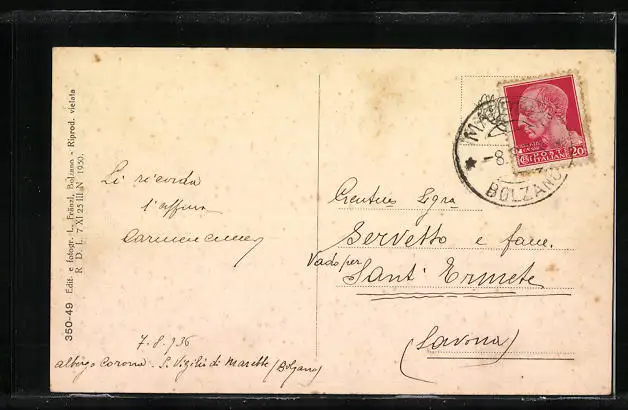 350-49 Edit. e fotogr. L. Fränzl, Bolzano - Riprod. vietata
R. D. L. 7 XI 25 III N 1950.
Vi ricorda
l'aff.ma
Carmencita
7.8.936
albergo Corona. S. Vigilio di Marebbe (Bolzano)
POSTE
ITALIANE
20
-8.
BOLZANO
Gent.ma Sig.ra
Servetto e fam.
Vado per
Sant' Ermete
(Savona)